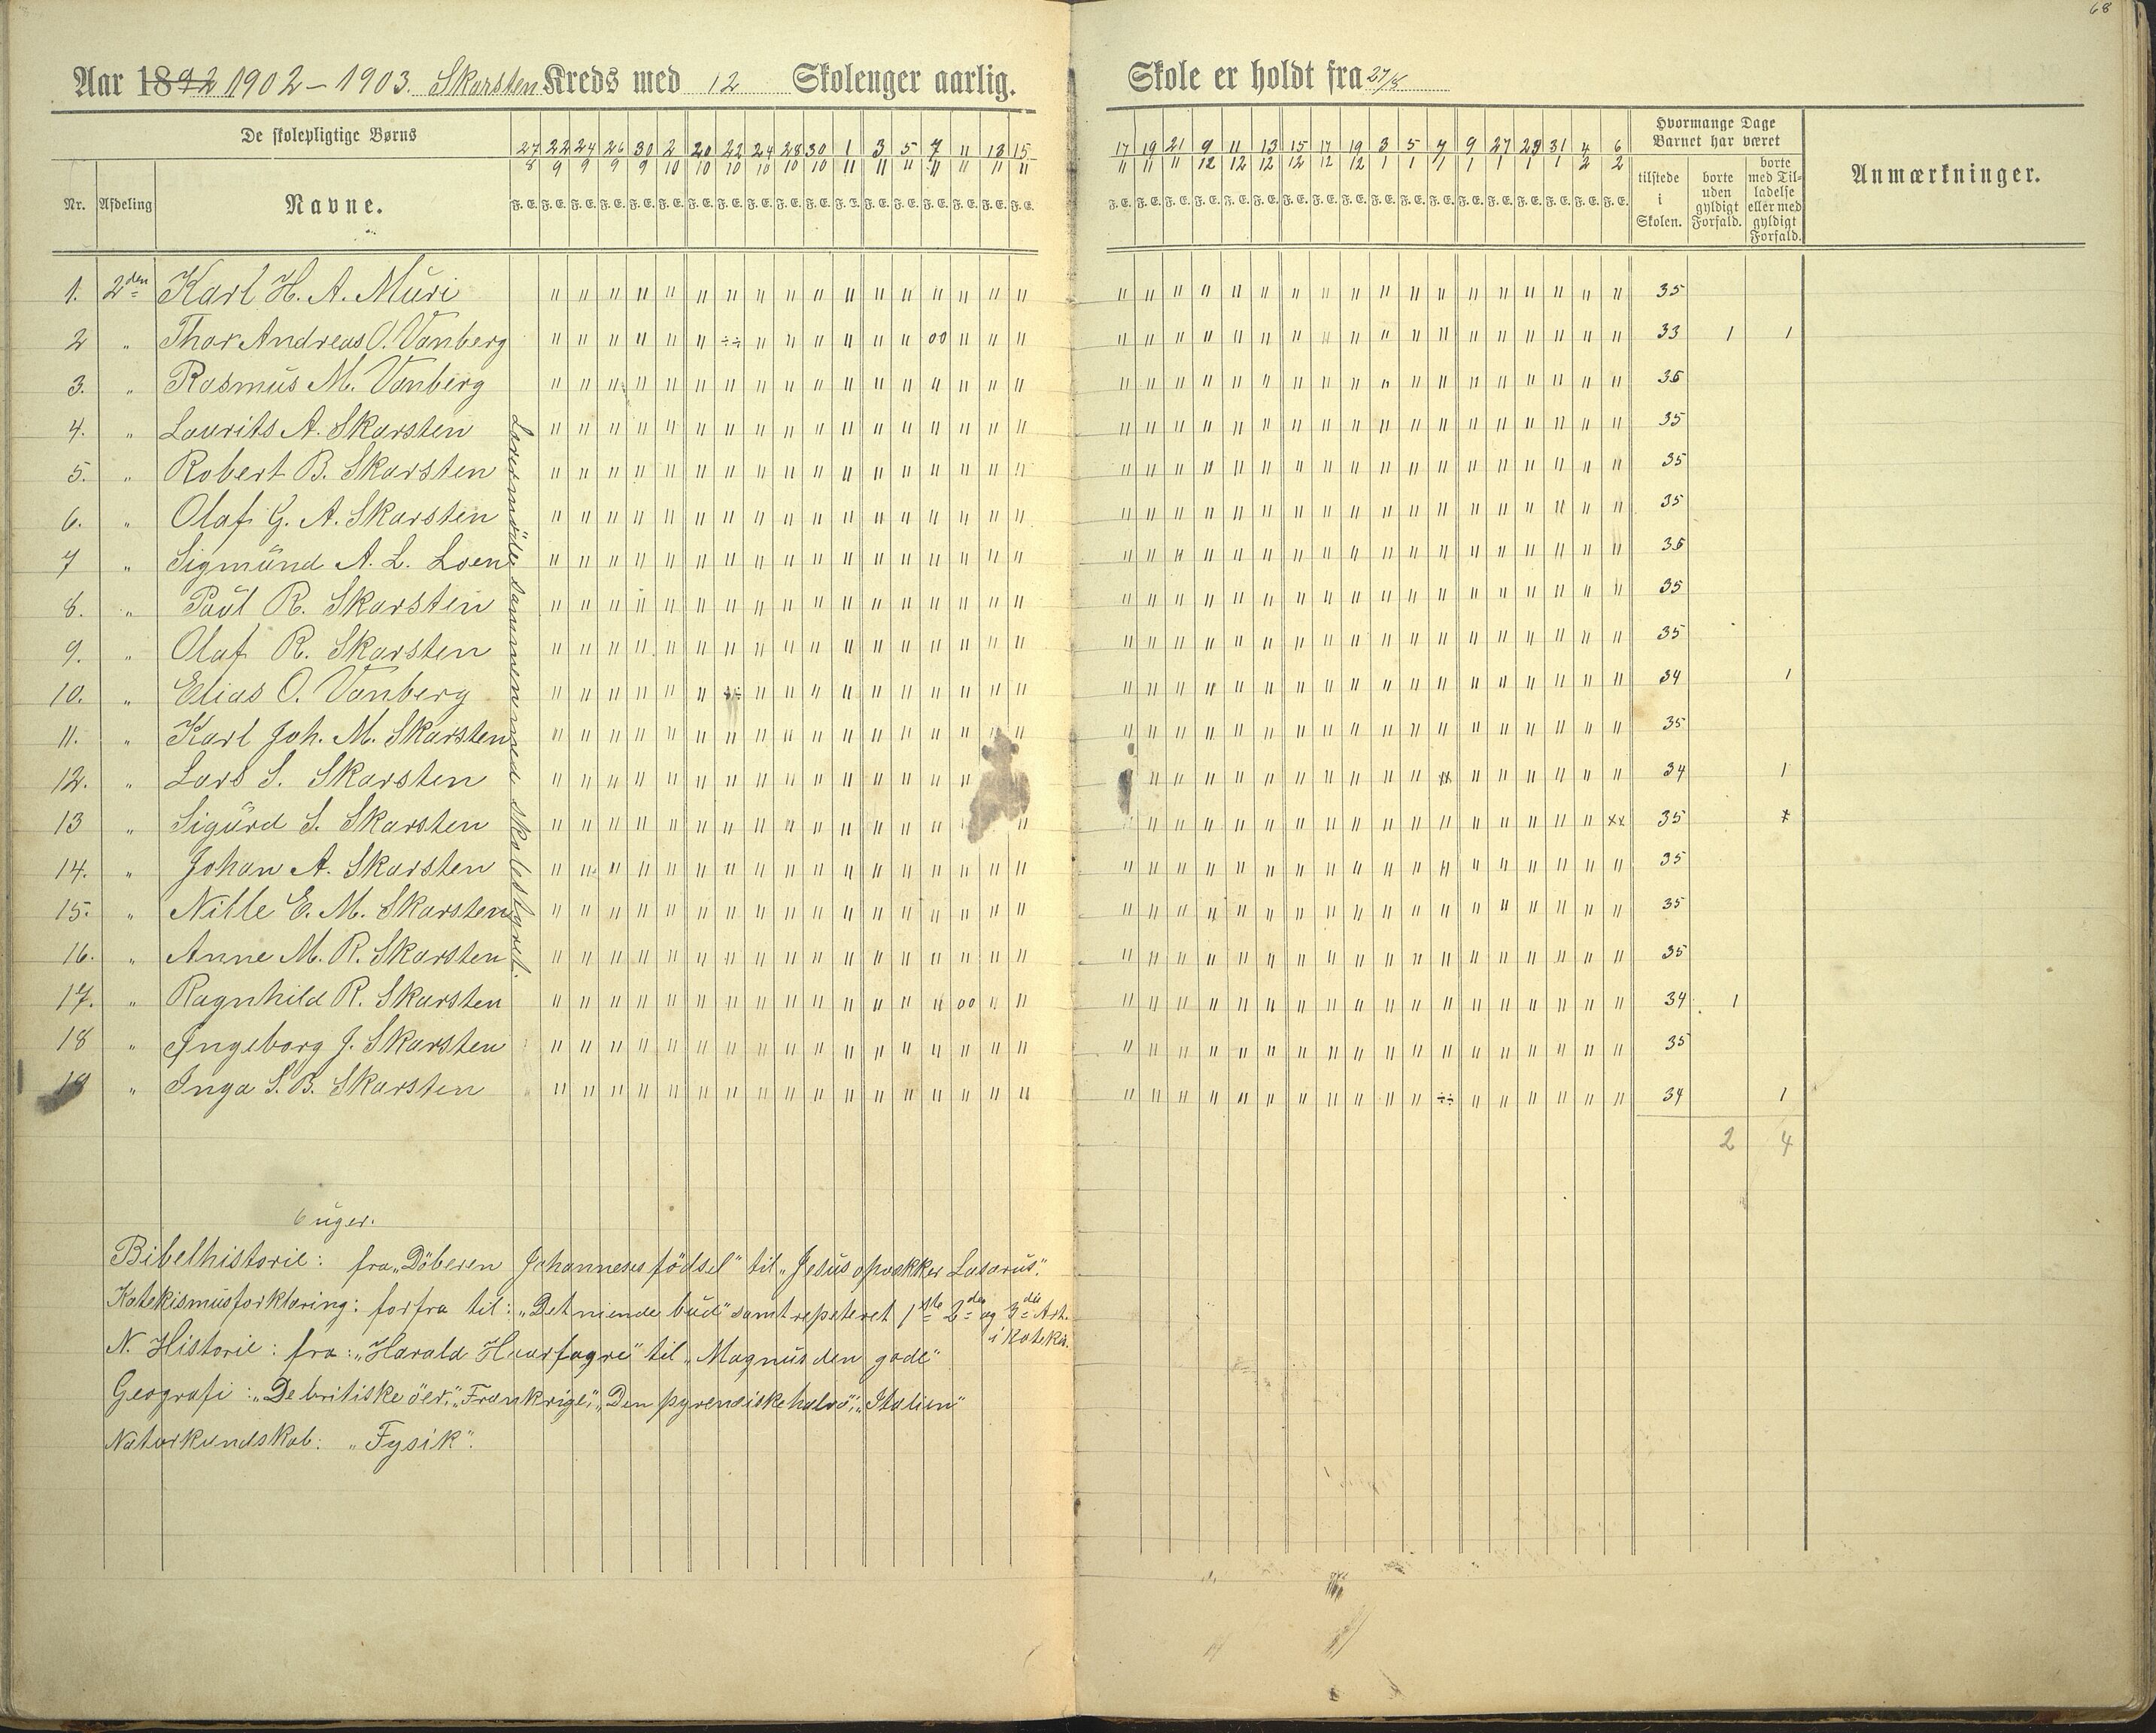 68
Aar 1892 1902-1903. Skarsten Kreds med 12 Skoleuger aarlig. Skole er holdt fra 27/8
De skolepligtige Børns
Hvormange Dage Barnet har været
Nr. Afdeling Navne.
27/8 22/9 24/9 26/9 30/9 2/10 20/10 22/10 24/10 28/10 30/10 1/11 3/11 5/11 7/11 11/11 13/11 15/11
17/11 19/11 21/11 9/12 11/12 13/12 15/12 17/12 19/12 3/1 5/1 7/1 9/1 27/1 29/1 31/1 4/2 6/2
F. E. F. E. F. E. F. E. F. E. F. E. F. E. F. E. F. E. F. E. F. E. F. E. F. E. F. E. F. E. F. E. F. E. F. E.
F. E. F. E. F. E. F. E. F. E. F. E. F. E. F. E. F. E. F. E. F. E. F. E. F. E. F. E. F. E. F. E. F. E. F. E.
tilstede i Skolen.
borte uden gyldigt Forfald.
borte med Tilladelse eller med gyldigt Forfald.
Anmærkninger.
1. 2den Karl H. A. Muri 35
2 " Thor Andreas O. Vanberg 33 1 1
3. " Rasmus M. Vanberg 35
4. " Laurits A. Skarsten 35
5. " Robert B. Skarsten 35
6. " Olaf G. A. Skarsten 35
7 " Sigmund A. L. Loen 35
8. " Paul R. Skarsten 35
9. " Olaf R. Skarsten 35
10. " Elias O. Vanberg 34 1
11. " Karl Joh. M. Skarsten 35
12. " Lars S. Skarsten 34 1
13 " Sigurd S. Skarsten 35
14. " Johan A. Skarsten 35
15. " Nille E. M. Skarsten 35
16. " Anne M. R. Skarsten 35
17. " Ragnhild R. Skarsten 34 1
18 " Ingeborg J. Skarsten 35
19 " Inga S. B. Skarsten 34 1
2 4
Lærermöde sammen med skolestyret.
6 uger.
Bibelhistorie: fra „Döberen Johanneses födsel" til „Jesus opvækker Lasarus".
Katekismusforklaring: forfra til: „Det niende bud" samt repeteret 1ste 2den og 3die Art. i Katek.
N. Historie: fra: „Harald Haarfagre" til „Magnus den gode"
Geografi: „De britiske öer", „Frankrige", „Den pyrenæiske halvö", „Italien"
Naturkundskab: „Fysik".